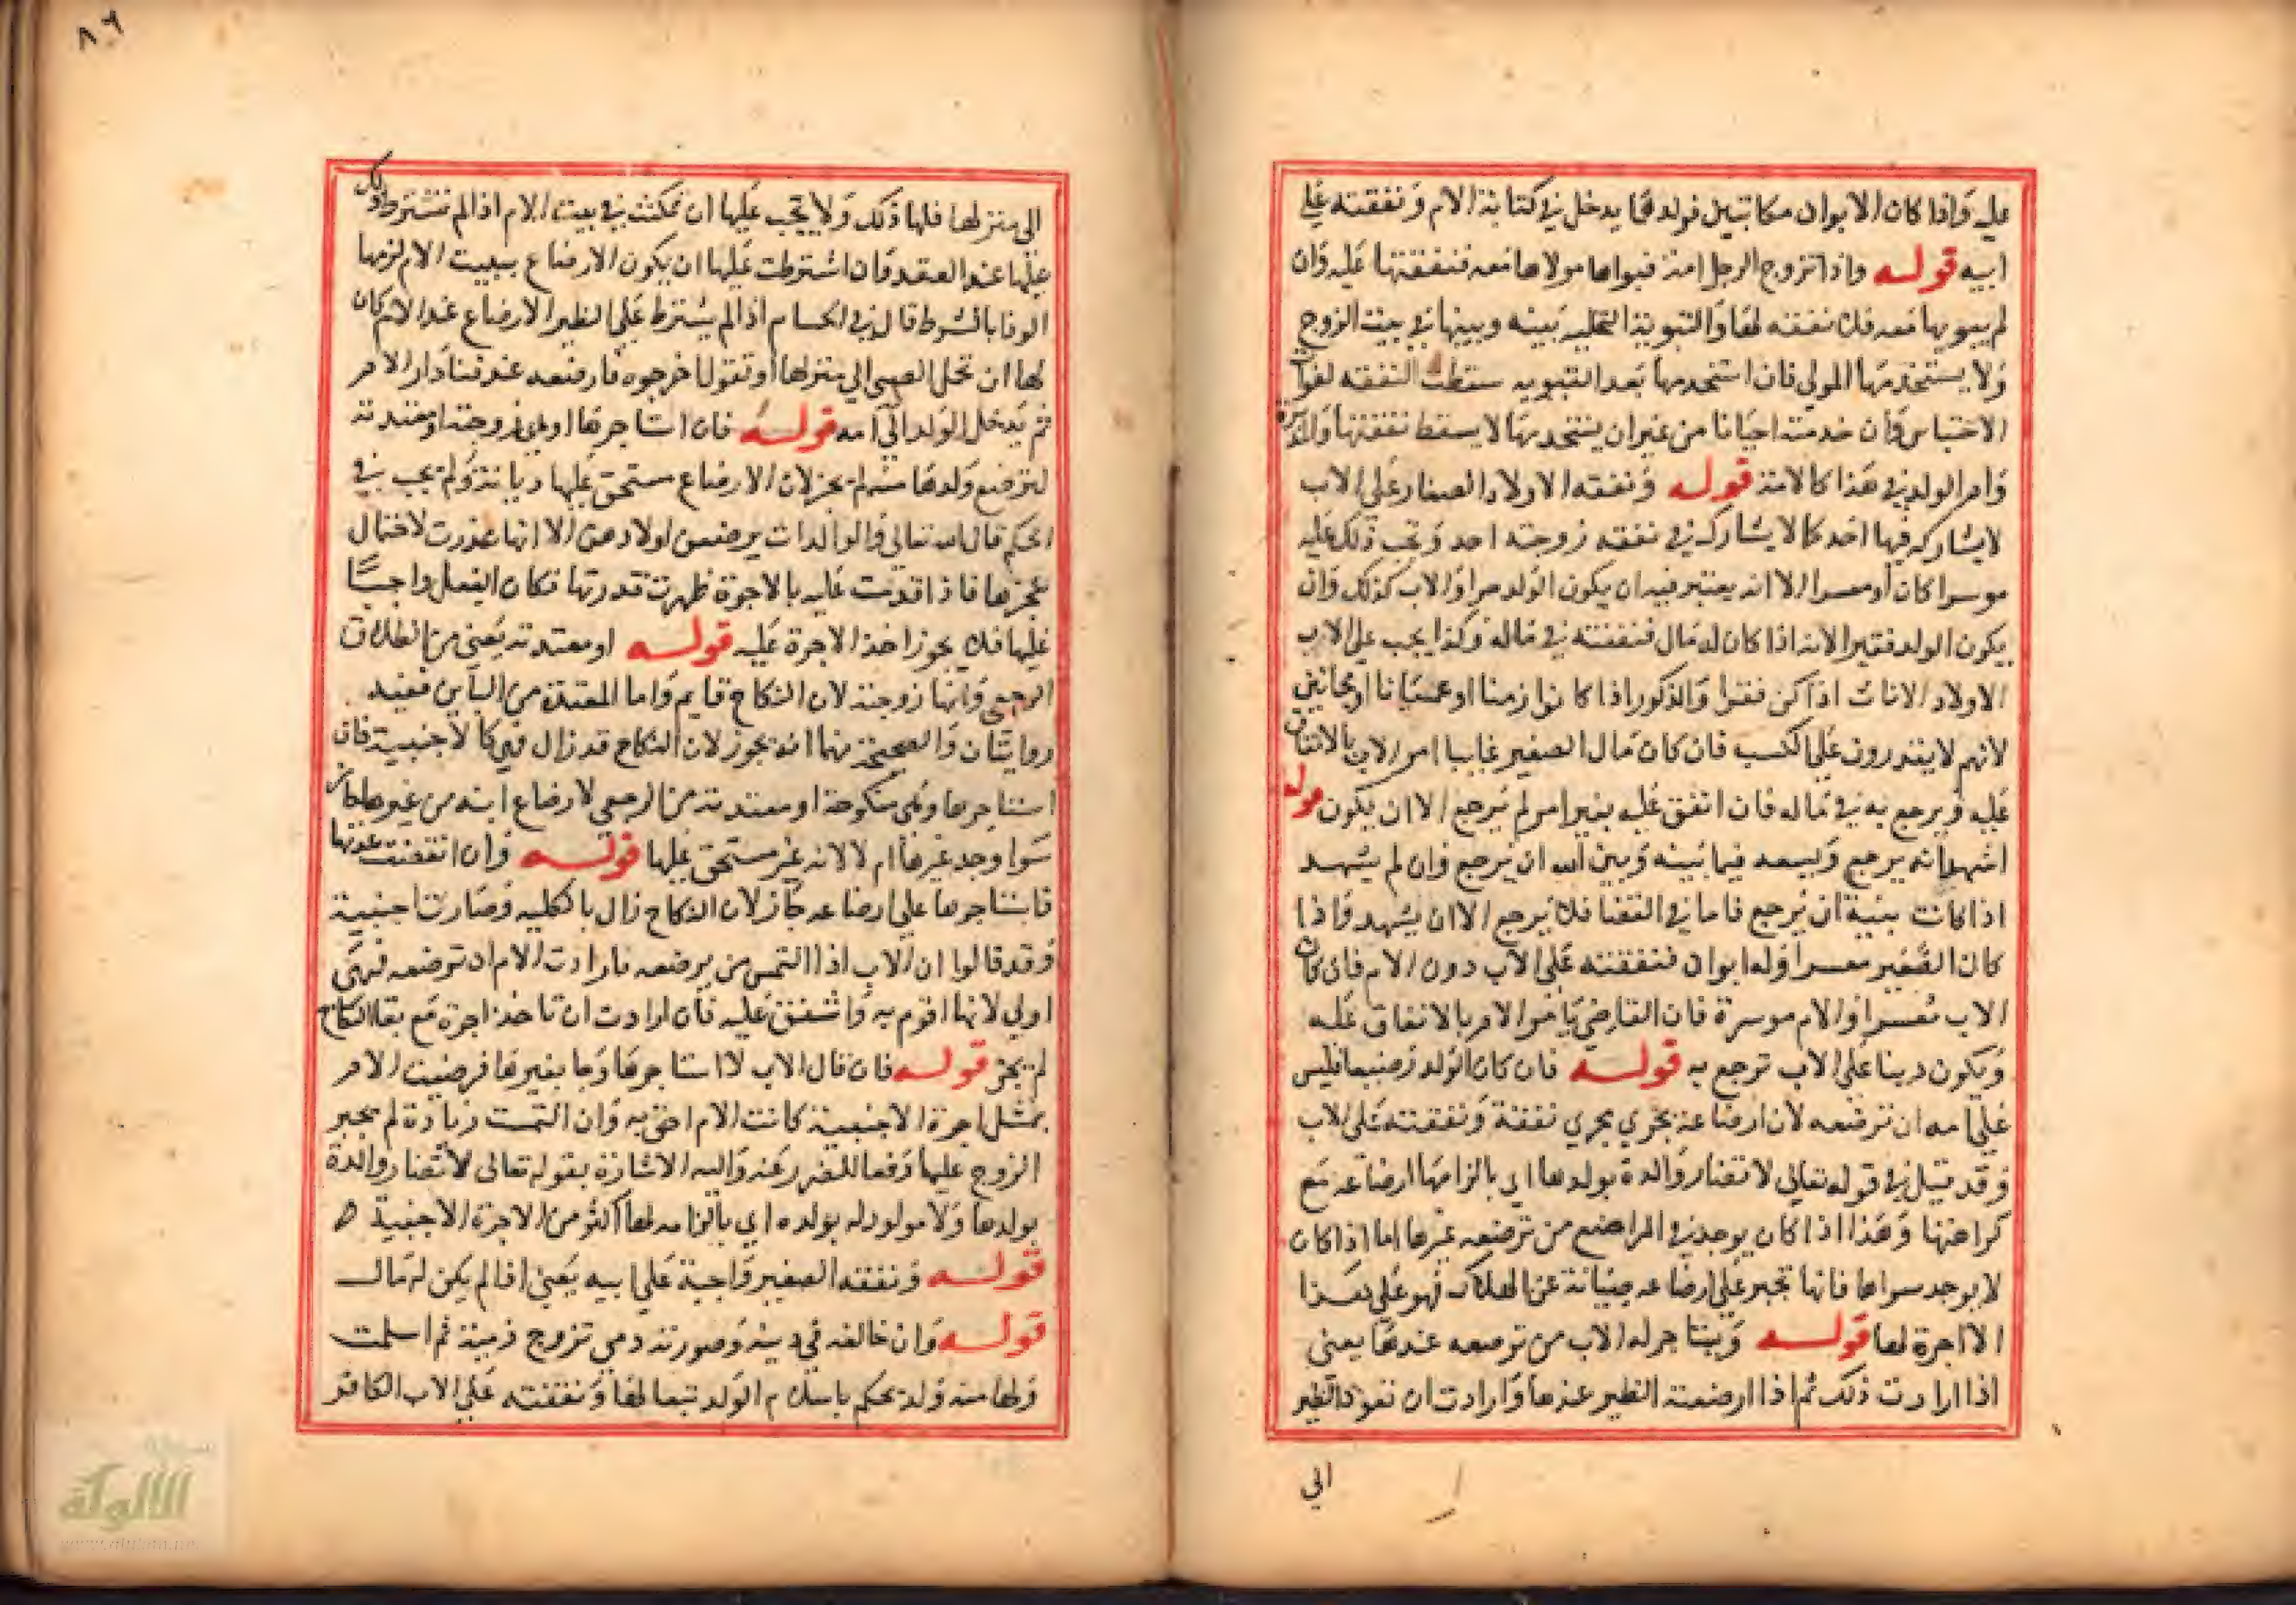 عليه واذا كان الابوان مكاتبين فولدهما يدخل في كتابة الام ونفقته على
ابيه قوله واذا تزوج الرجل امة فبواها مولاها معه فنفقتها عليه وان
لم يبويها معه فلا نفقة لها والتبوية التخلية بينه وبينها في بيت الزوج
ولا يستخدمها المولى فان استخدمها بعد التبوية سقطت النفقة لفوات
الاحتباس وان خدمته احيانا من غير ان يستخدمها لا يسقط نفقتها والمدبرة
وام الولد في هذا كالامة قوله ونفقة الاولاد الصغار على الاب
لا يشاركه فيها احد كما لا يشاركه في نفقة زوجته احد وتجب ذلك عليه
موسرا كان او معسرا الا انه يعتبر فيه ان يكون الولد حرا والاب كذلك وان
يكون الولد فقيرا لانه اذا كان له مال فنفقته في ماله وكذا يجب على الاب
الاولاد الاناث اذا كن فقرا والذكور اذا كانوا زمنا او عميانا او مجانين
لانهم لا يقدرون على الكسب فان كان مال الصغير غايبا امر الاب بالانفاق
عليه ويرجع به في ماله فان انفق عليه بغير امر لم يرجع الا ان يكون
اشهد انه يرجع ويسعه فيما بينه وبين الله ان يرجع وان لم يشهد
اذا كانت بنية ان يرجع فاما في القضا فلا يرجع الا ان يشهد واذا
كان الصغير معسرا وله ابوان فنفقته على الاب دون الام فان كان
الاب معسرا والام موسرة فان القاضي يامر الام بالانفاق عليه
ويكون دينا على الاب ترجع به قوله فان كان الولد رضيعا فليس
على امه ان ترضعه لان ارضاعه يجري مجري نفقة ونفقته على الاب
وقد قيل في قوله تعالى لا تضار والدة بولدها اي بالزامها ارضاعه مع
كراهتها وهذا اذا كان يوجد في المراضع من ترضعه غيرها اما اذا كان
لا يوجد سواها فانها تجبر على ارضاعه صيانة عن الهلاك فهو على هذا
الا اجرة لها قوله ويستاجر له الاب من ترضعه عندها يعني
اذا ارادت ذلك ثم اذا ارضعته الظير عندها وارادت ان تعود الظير
الى
٨٩
الى منزلها فلها ذلك ولا يجب عليها ان تمكث في بيت الام اذا لم تشترط ذلك
عليها عند العقد فان اشترطت عليها ان يكون الارضاع ببيت الام لزمها
الوفا بالشرط قال في الحسام اذا لم يشترط على الظير الارضاع عند الام كان
لها ان تحمل الصبي الى منزلها او تقول اخرجوه فارضعه عند فنا دار الام
ثم يدخل الولد الى امه قوله فان استاجرها وهي زوجته او معتدته
لترضع ولدها منه لم يجز لان الارضاع مستحق عليها ديانة ولم يجب في
الحكم قال الله تعالى والوالدات يرضعن اولادهن الا انها عذرت لاحتمال
عجزها فاذا اقدمت عليه بالاجرة ظهرت قدرتها فكان الفعل واجبا
عليها فلا يجوز اخذ الاجرة عليه قوله او معتدته يعني من الطلاق
الرجعي وانها زوجته لان النكاح قايم واما المعتدة من الباين ففيه
روايتان والصحيحة منهما انه يجوز لان النكاح قد زال فهي كالاجنبية فان
استاجرها وهي منكوحة او معتدته من الرجعي لارضاع ابنه من غيرها جاز
سوا وجد غيرها ام لا لانه غير مستحق عليها قوله وان انقضت عدتها
فاستاجرها على ارضاعه جاز لان النكاح زال بالكلية وصارت اجنبية
وقد قالوا ان الاب اذا التمس من يرضعه فارادت الام ان ترضعه فهي
اولى لانها اقوم به واشفق عليه فان ارادت ان تاخذ اجرة مع بقا النكاح
لم يجز قوله فان قال الاب لا استاجرها وجا بغيرها فرضيت الام
بمثل اجرة الاجنبية كانت الام احق به وان التمست زيادة لم يجبر
الزوج عليها دفعا للضرر عنه واليه الاشارة بقوله تعالى لا تضار والدة
بولدها ولا مولود له بولده اي بالزامه لها اكثر من الاجرة الاجنبية ه
قوله ونفقة الصغير واجبة على ابيه يعني اذا لم يكن له مال
قوله وان خالفه في دينه وصورته ذمي تزوج ذمية ثم اسلمت
ولها منه ولد يحكم باسلام الولد تبعا لها ونفقته على الاب الكافر
الألوكة